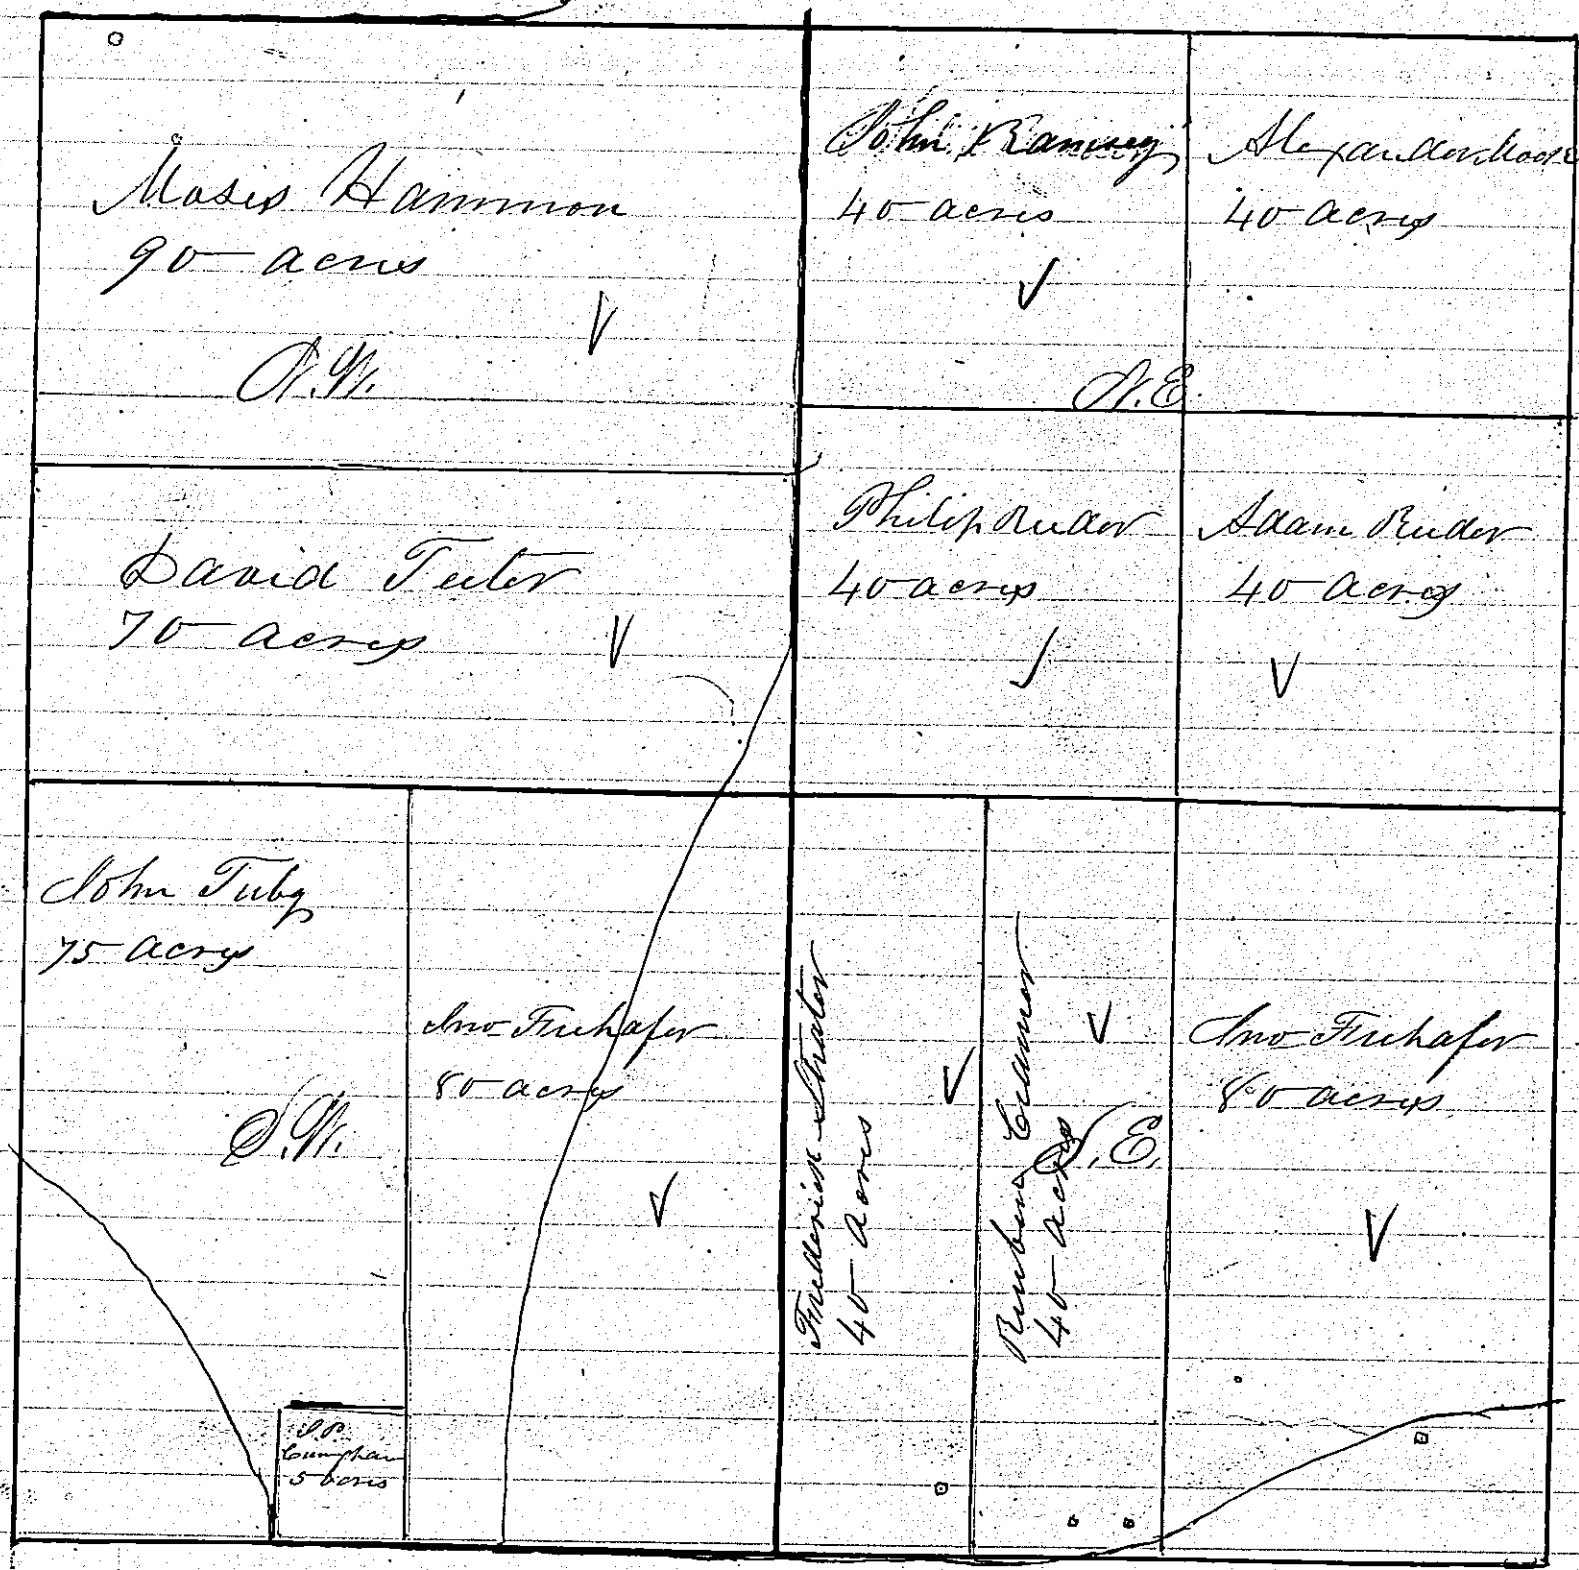 Moses Hammon
90 acres
N.W.
John Ramsey
40 acres
Alexander Moore
40 acres
N.E.
David Teeter
70 acres
Philip Ruder
40 acres
Adam Ruder
40 acres
John Tuby
75 acres
S.W.
Jno Fruhafer
80 acres
Frederick Strater
40 Acres
Reuben Cramer
40 Acres
S.E.
Jno Fruhafer
80 acres
5 acres